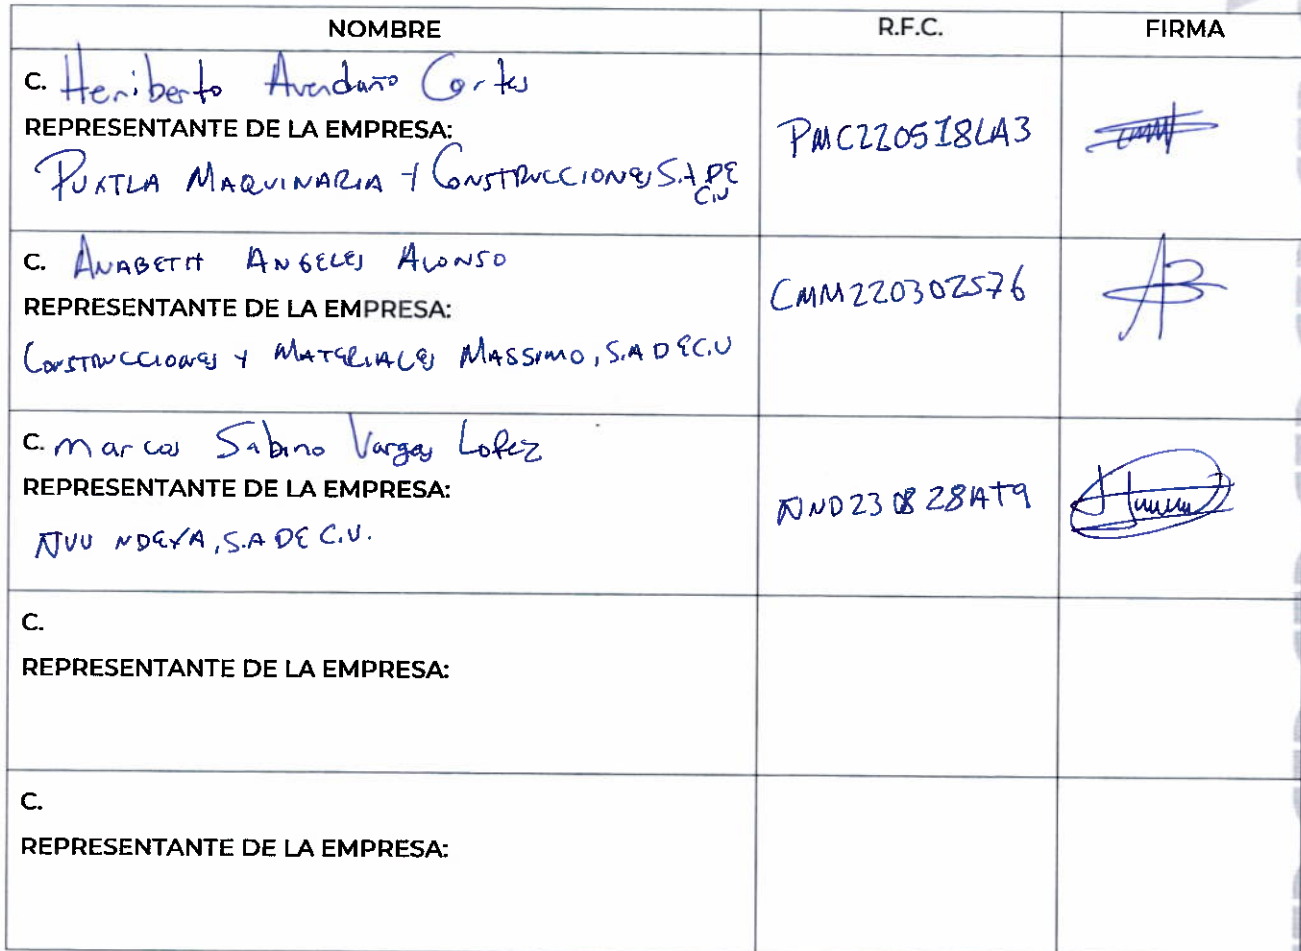 NOMBRE R.F.C. FIRMA
C. Heriberto Avendaño Cortes
REPRESENTANTE DE LA EMPRESA:
PUXTLA MAQUINARIA Y CONSTRUCCIONES S.A DE C.V
PMC220518LA3
C. ANABETH ANGELES ALONSO
REPRESENTANTE DE LA EMPRESA:
CONSTRUCCIONES Y MATERIALES MASSIMO, S.A DE C.V
CMM220302576
C. Marcos Sabino Vargas Lopez
REPRESENTANTE DE LA EMPRESA:
ÑUU NDEYA, S.A DE C.V.
ÑND230828AT9
C.
REPRESENTANTE DE LA EMPRESA:
C.
REPRESENTANTE DE LA EMPRESA: